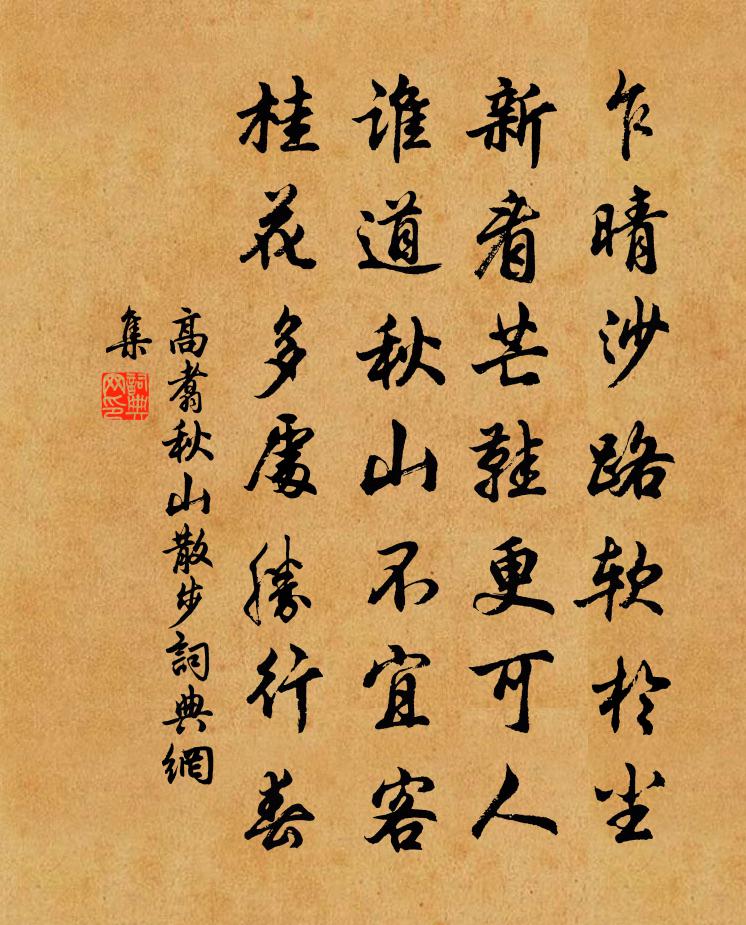 乍晴沙路软於尘
新着芒鞋更可人
谁道秋山不宜客
桂花多處勝行春
高翥秋山散步詞典網
集
詞典网印